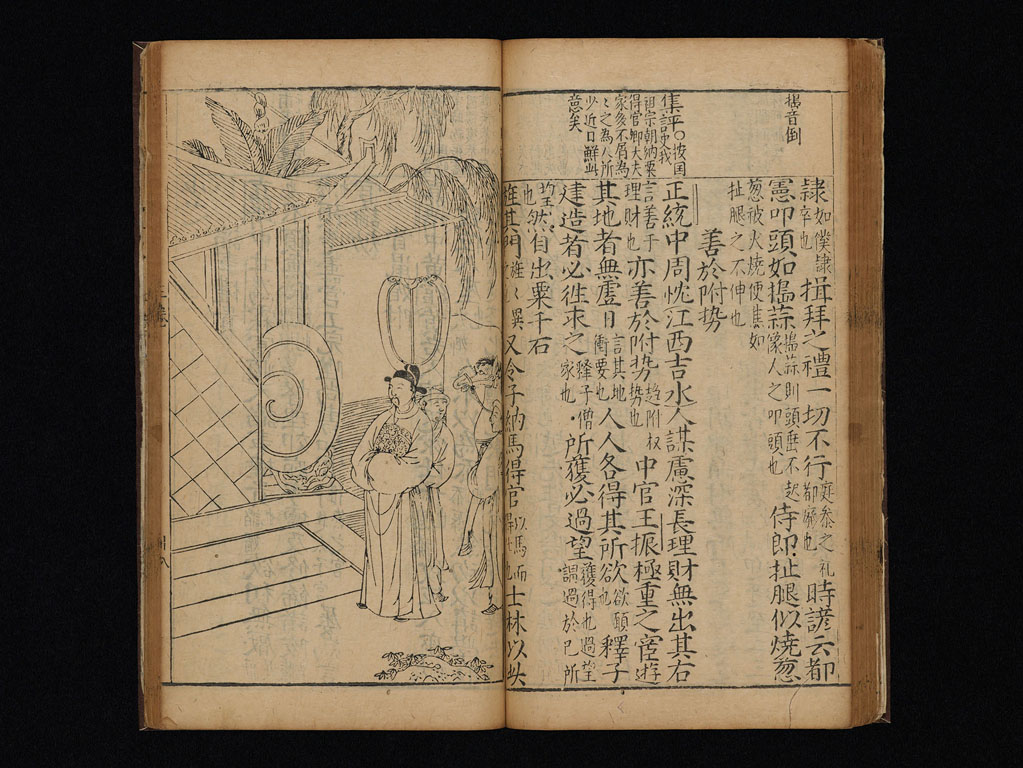 搗音倒
隸如僕隸卒也揖拜之禮一切不行庭參之礼都癈也時諺云都
憲叩頭如搗蒜搗蒜則頭垂不起像人之叩頭也侍郎扯腿似燒葱
葱被火燒便焦如扯腿之不伸也
善於附势
集評○按国
祖宗朝納粟
得官卿大夫
家多不屑為
少近日鮮此
意矣
正統中周忱江西吉水人謀慮深長理財無出其右
言善于理財也亦善於附势趋附权势也中官王振極重之宦遊
其地者無虛日言其地衝要也人人各得其所欲欲願也釋子
建造者必徃求之釋子僧家也所獲必過望獲得也過望謂過於己所
望也然自出粟千石
旌其門又令子納馬得官士林以此